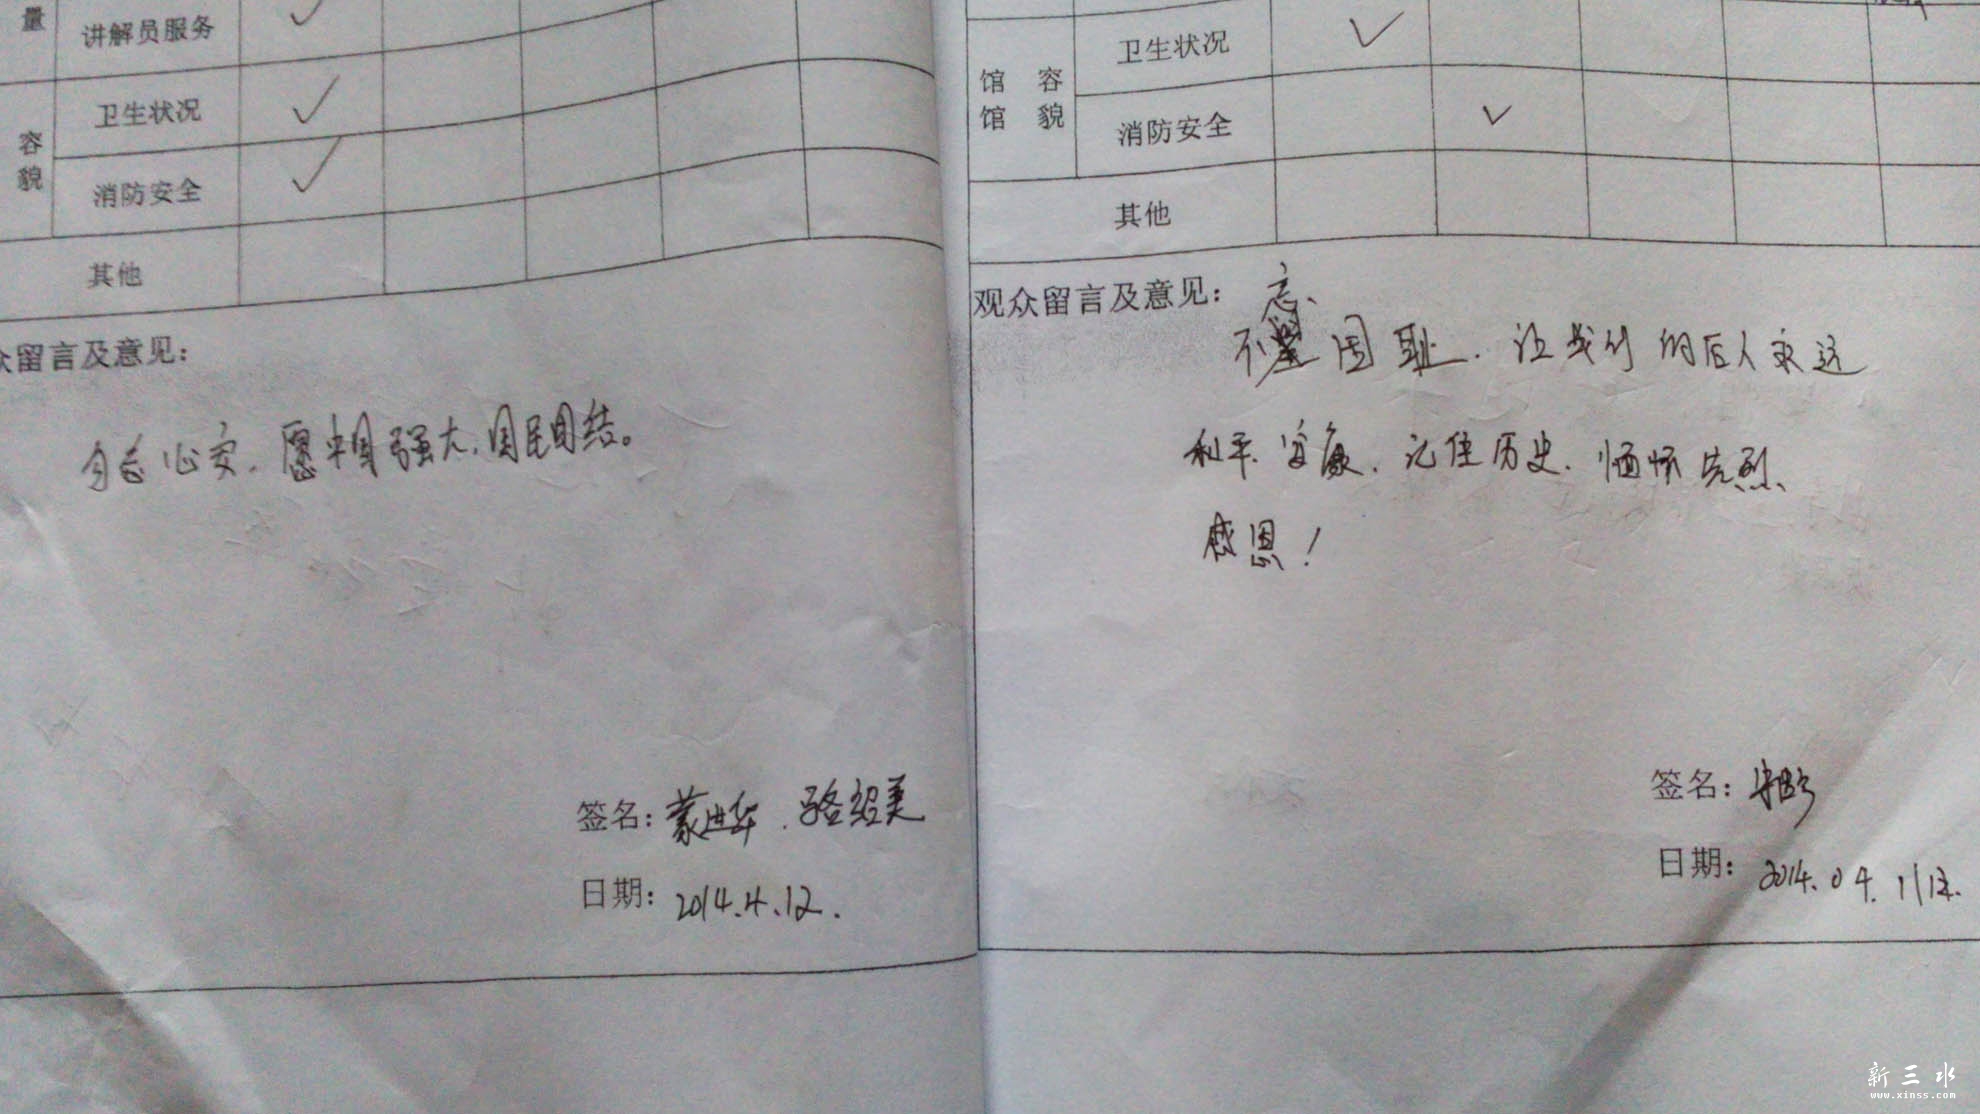 量
讲解员服务
卫生状况
容
貌
消防安全
其他
众留言及意见:
勿忘心安.愿中国强大,国民团结。
签名:蒙进华.骆绍美
日期:2014.4.12.
馆 容
馆 貌
卫生状况
消防安全
其他
观众留言及意见:
忘
不 国耻.让我们的后人永远
和平.安康.记住历史.缅怀先烈
感恩!
签名:
日期:2014.04.
新三水
www.xinss.com